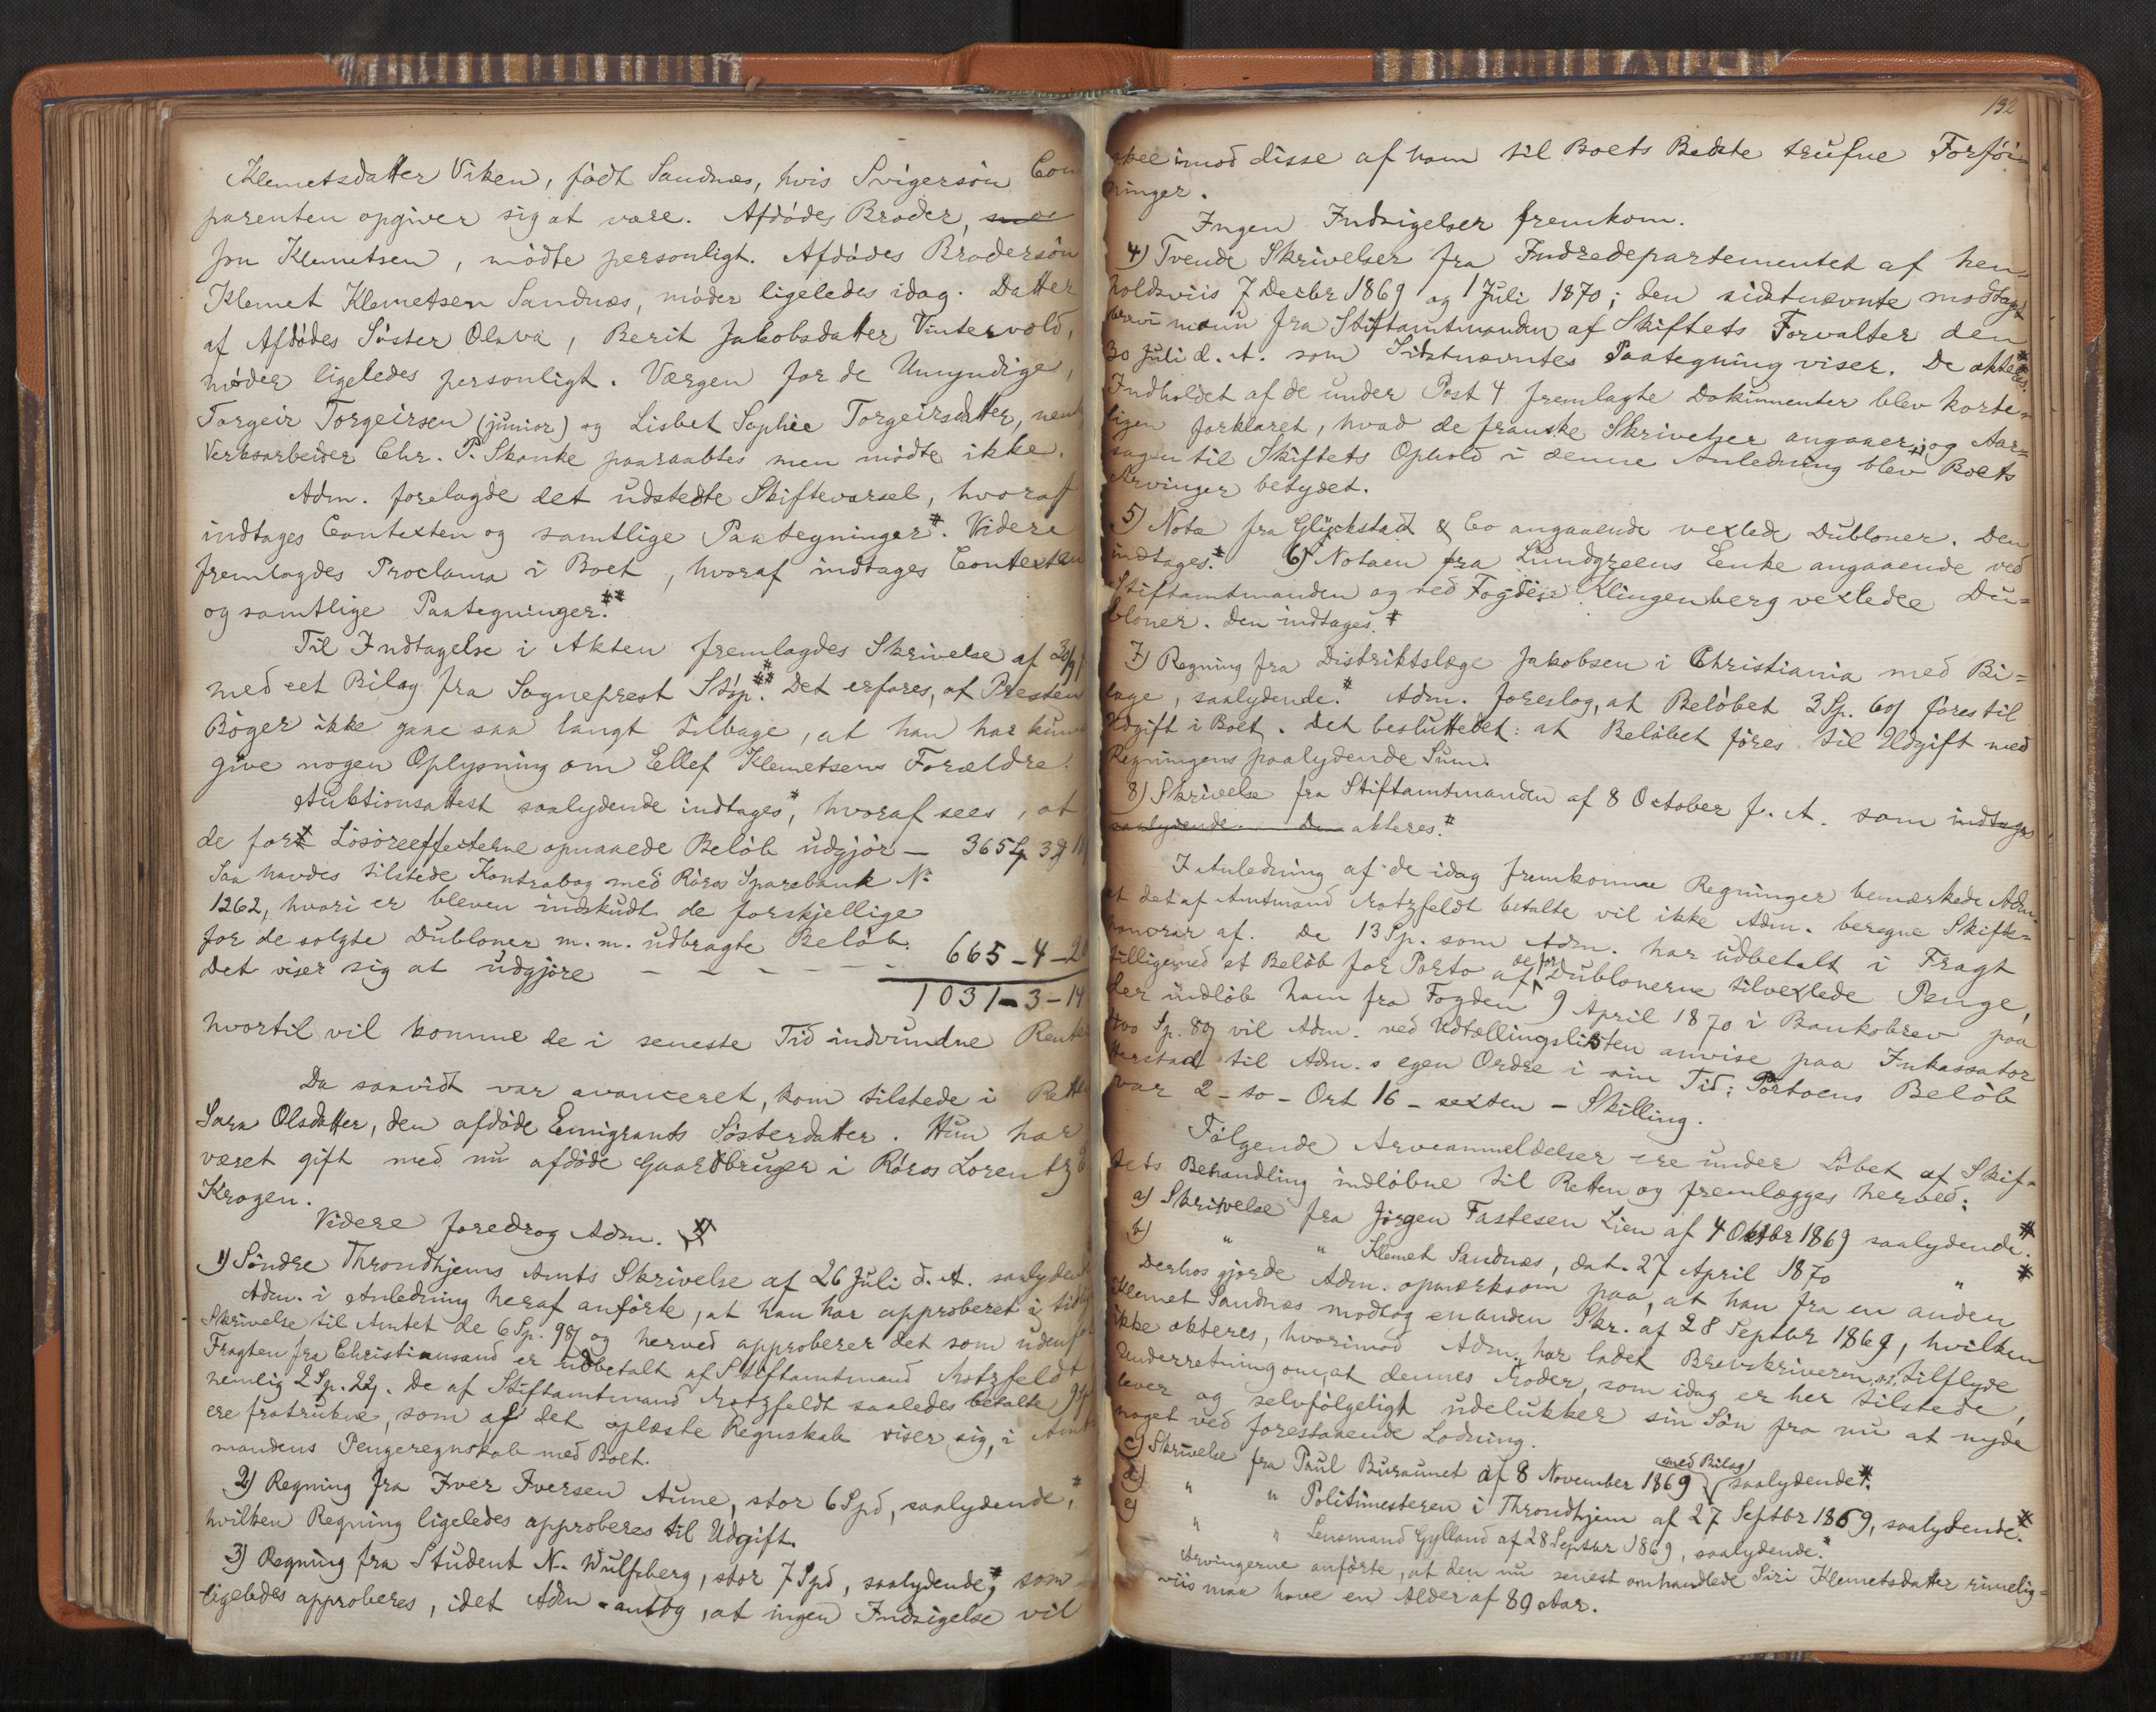 Klemetsdatter Viken, født Sandnæs, hvis Svigersön Com
parenten opgiver sig at være. Afdödes Broder,
Jon Klemetsen, mödte personligt. Afdödes Brodersön
Klemet Klemetsen Sandnæs, möder ligeledes idag. Datter
af Afdödes Söster Olava, Berit Jakobsdatter Vintervold,
möder ligeledes personligt. Værgen for de Umyndige,
Torgeir Torgeirsen (junior) og Lisbet Sophie Torgeirsdatter,
Verksarbeider Chr. P. Skanke paaraabtes men mödte ikke.
Adm. forelagde det udstedte Skiftevarsel, hvoraf
indtages Contexten og samtlige Paategninger.# Videre
fremlagdes Proclama i Boet, hvoraf indtages Contexten
og samtlige Paategninger.##
Til Indtagelse i Akten fremlagdes Skrivelse af 30/9
med eet Bilag fra Sogneprest Stöp.## Det erfares, at Presten
Böger ikke gaae saa langt tilbage, at han har kun
give nogen Oplysning om Ellef Klemetsens Forældre.
Auktionsattest saalydende indtages,# hvoraf sees, at
de for Lösöreeffecterne opnaaede Belöb udgjör — 365 Sp 3
Saa havdes tilstede Kontrabog med Röros Sparebank No
1262, hvori er bleven indskudt de forskjellige
for de solgte Dubloner m. m. udbragte Belöb.
Det viser sig at udgjöre — — — — — 665 - 4 - 20
1031 - 3 - 14
hvortil vil komme de i seneste Tid indvundne Renter
Da saavidt var avanceret, kom tilstede i Rette
Sara Olsdatter, den afdöde Emigrants Sösterdatter. Hun har
været gift med nu afdöde Gaardbruger i Röros Lorentz
Krogen.
Videre foredrog Adm. #
1) Söndre Throndhjems Amts Skrivelse af 26 Juli d. A. saalydende
Adm. i Anledning heraf anförte, at han har approberet i
Skrivelse til Amtet de 6 Sp. 98 og herved approberer det som uden
Fragten fra Christiansand er udbetalt af Stiftamtmand Motzfeldt
nemlig 2 Sp. 22. De af Stiftamtmand Motzfeldt saaledes betalte
ere fratrukne, som af det oplæste Regnskab viser sig, i Amt
mandens Pengeregnskab med Boet.
2) Regning fra Iver Iversen Aune, stor 6 Spd, saalydende,#
hvilken Regning ligeledes approberes til Udgift.
3) Regning fra Student N. Wulfsberg, stor 7 Spd, saalydende,# som
ligeledes approberes, idet Adm antog, at ingen Indsigelse vil
132
skee imod disse af ham til Boets Bedste trufne Forföi-
ninger.
Ingen Indsigelser fremkom.
4) Tvende Skrivelser fra Indredepartementet af hen-
holdsviis 7 Decbr 1869 og 1 Juli 1870; den sidstnævnte modtagt
fra Stiftamtmanden af Skiftets Forvalter den
30 Juli d. A. som Sidstnævntes Paategning viser. De akteres.#
Indholdet af de under Post 4 fremlagte Dokumenter blev korte-
ligen forklaret, hvad de franske Skrivelser angaaer; og Aar=
sagen til Skiftets Ophold i denne Anledning blev Boets
Arvinger betydet.
5) Nota fra Glückstad & Co angaaende vexlede Dubloner. Den
indtages.# 6) Notaen fra Lundgreens Enke angaaende ved
Stiftamtmanden og ved Fogden Klingenberg vexlede Du=
bloner. Den indtages.#
7) Regning fra Distriktslæge Jakobsen i Christiania med Bi=
lage, saalydende.# Adm. foreslog, at Belöbet 3 Sp. 60 föres til
Udgift i Boet. Det besluttedet: at Belöbet föres til Udgift med
Regningens paalydende Sum.
8) Skrivelse fra Stiftamtmanden af 8 October f. A. som indtages
saalydende. Den akteres.#
I Anledning af de idag fremkomne Regninger bemærkede Adm.
at det af Amtmand Motzfeldt betalte vil ikke Adm. beregne Skifte=
honorar af. De 13 Sp. som Adm. har udbetalt i Fragt
tilligemed et Belöb for Porto af de for Dublonerne tilvexlede Penge,
der indlöb ham fra Fogden 9 April 1870 i Bankobrev paa
Sp. 80 vil Adm. ved Udtællingslisten anvise paa Inkassator
til Adm.s egen Ordre i sin Tid: Portoens Belöb
var 2 - to - Ort 16 - sexten - Skilling.
Fölgende Arveanmeldelser ere under Löbet af Skif-
tets Behandling indlöbne til Retten og fremlægges herved:
a) Skrivelse fra Jörgen Fastesen Lien af 4 Oktbr 1869 saalydende.#
b) " " Klemet Sandnæs, dat. 27 April 1870 " #
Derhos gjorde Adm. opmærksom paa, at han fra en anden
Klemet Sandnæs modtog en anden Skr. af 28 Septbr 1869, hvilken
ikke akteres, hvorimod Adm. har ladet Brevskriveren tilflyde
Underretning om, at dennes Moder, som idag er her tilstede,
lever og selvfölgeligt udelukker sin Sön fra nu at nyde
noget ved forestaaende Lodning.
c) Skrivelse fra Paul Buraunet af 8 November 1869 (med Bilag) saalydende.#
d) " " Politimesteren i Throndhjem af 27 Septbr 1869, saalydende.#
e) " " Lensmand Gylland af 28 Septbr 1869, saalydende.#
Arvingerne anförte, at den nu senest omhandlede Siri Klemetsdatter rimelig=
viis maa have en Alder af 89 Aar.